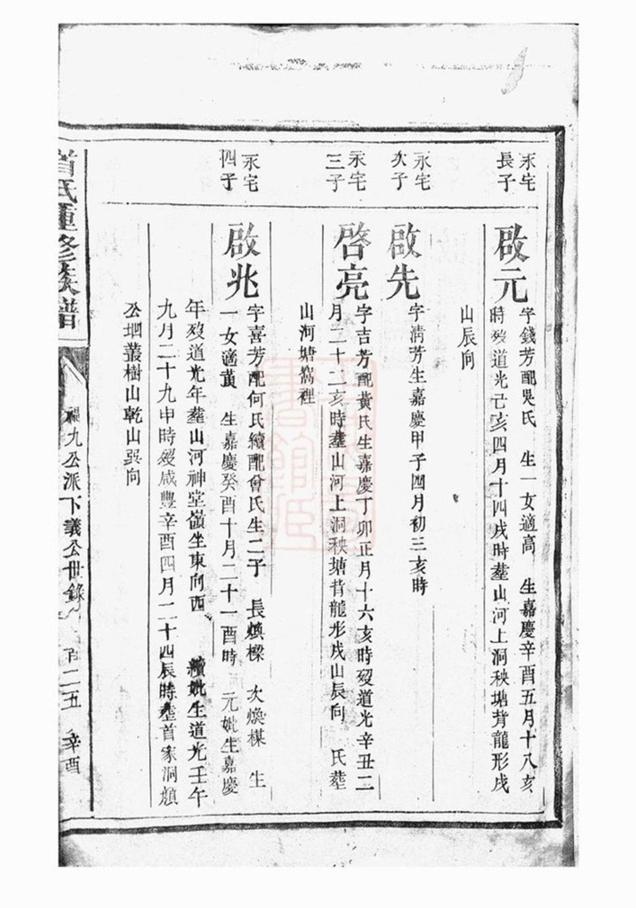 永宅
長子
啟元
字錢芳配吳氏 生一女適高 生嘉慶辛酉五月十八亥
時歿道光己亥四月十四戌時塟山河上洞秧塘背龍形戌
山辰向
永宅
次子
啟先
字清芳生嘉慶甲子四月初三亥時
永宅
三子
啓亮
字吉芳配黃氏生嘉慶丁卯正月十六亥時歿道光辛丑二
月二十二亥時塟山河上洞秧塘背龍形戌山辰向 氏塟
山河塘窩裡
永宅
四子
啟兆
字喜芳配何氏續配曾氏生二子 長煥樑 次煥楳 生
一女適黃 生嘉慶癸酉十月二十一酉時 元妣生嘉慶
年歿道光年塟山河神堂嶺坐東向西 續妣生道光壬午
九月二十九申時歿咸豐辛酉四月二十四辰時塟首家洞
公垇叢樹山乾山巽向
首氏重修族譜
九公派下義公世錄
二五
辛酉